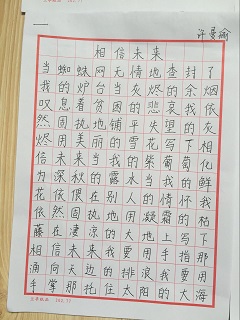 一
许曼瑜
相信未来
当蜘蛛网无情地查封了
我的炉台当灰烬的余烟
叹息着贫困的悲哀我依
然固执地铺平失望的灰
烬用美丽的雪花写下相
信未来当我的紫葡萄化
为深秋的露水当我的鲜
花依偎在别人的情怀我
依然固执地用凝霜的枯
藤在凄凉的大地上写下
相信未来我要用手指那
涌向天边的排浪我要用
手掌那托住太阳的大海